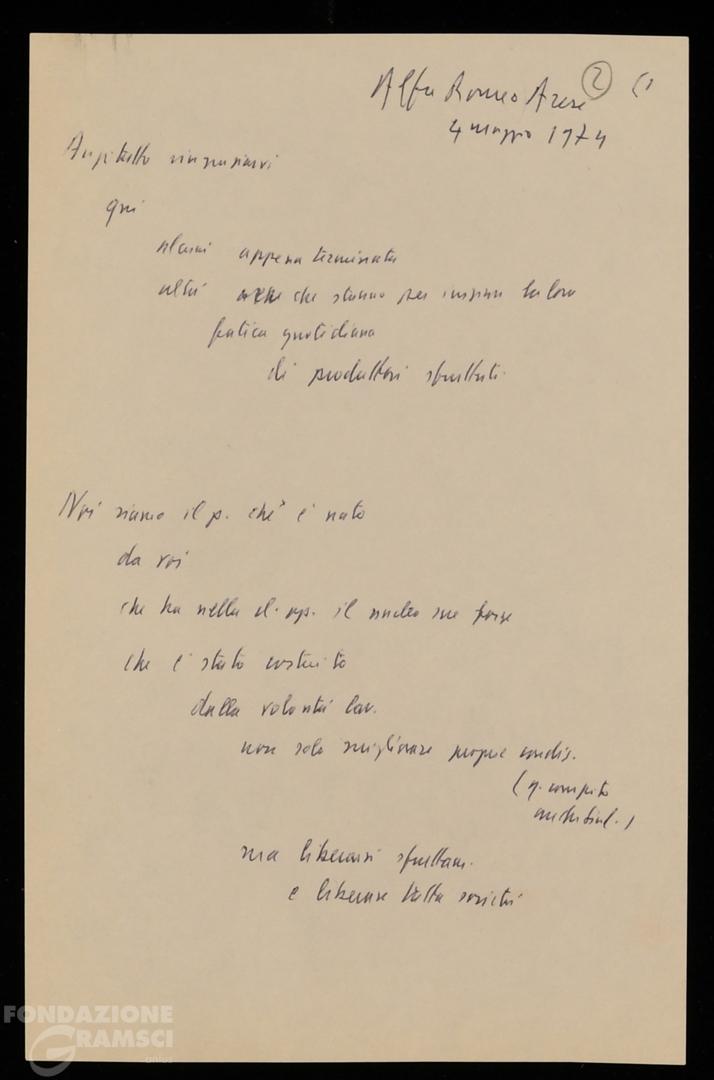 Alfa Romeo Arese 2 (1
4 maggio 1974
Anzitutto ringraziarvi
qui
alcuni appena terminata
altri che stanno per iniziare la loro
fatica quotidiana
di produttori sfruttati.
Noi siamo il p. che è nato
da voi
che ha nella cl. op. il nucleo sue forze
che è stato costruito
dalla volontà lav.
non solo migliorare proprie condiz.
(q. compito
anche sind.)
ma liberarsi sfruttam.
e liberare tutta società
FONDAZIONE
GRAMSCI
onlus